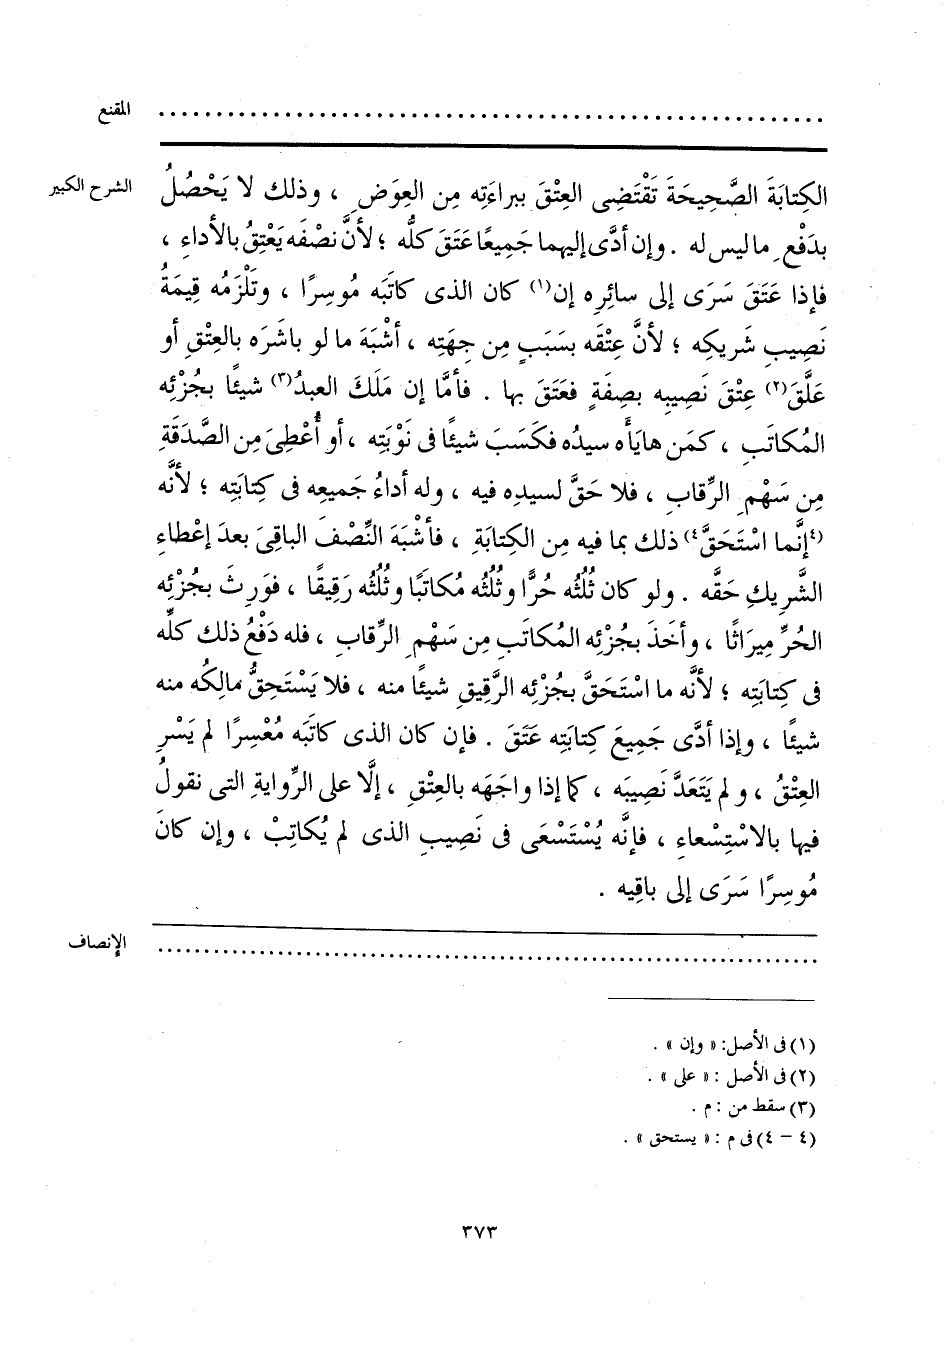 المقنع ..........................................................
الشرح الكبير
الكِتابَةَ الصَّحِيحَةَ تَقْتَضِى العِتْقَ ببراءَتِه مِن العِوَضِ ، وذلك لا يَحْصُلُ
بدَفْعِ ما ليس له . وإن أدَّى إليهما جَمِيعًا عَتَقَ كلُّه ؛ لأنَّ نصْفَه يَعْتِقُ بالأداءِ ،
فإذا عَتَقَ سَرَى إلى سائِرِه إن(١) كان الذى كاتَبَه مُوسِرًا ، وتَلْزَمُه قِيمَةُ
نَصِيبِ شَرِيكِه ؛ لأنَّ عِتْقَه بسَبَبٍ مِن جِهَتِه ، أشْبَهَ ما لو باشَرَه بالعِتْقِ أو
عَلَّقَ(٢) عِتْقَ نَصِيبِه بصِفَةٍ فعَتَقَ بها . فأمَّا إن مَلَكَ العبدُ(٣) شيئًا بجُزْئِه
المُكاتَبِ ، كمَن هايَأَه سيدُه فكَسَبَ شيئًا فى نَوْبَتِه ، أو أُعْطِىَ مِن الصَّدَقَةِ
مِن سَهْمِ الرِّقابِ ، فلا حَقَّ لسيدِه فيه ، وله أداءُ جَمِيعِه فى كِتابَتِه ؛ لأنَّه
(٤إنَّما اسْتَحَقَّ٤) ذلك بما فيه مِن الكِتابَةِ ، فأشْبَهَ النِّصْفَ الباقِىَ بعدَ إعْطاءِ
الشَّرِيكِ حَقَّه . ولو كان ثُلُثُه حُرًّا وثُلُثُه مُكاتَبًا وثُلُثُه رَقِيقًا ، فوَرِثَ بجُزْئِه
الحُرِّ مِيرَاثًا ، وأخَذَ بجُزْئِه المُكاتَبِ مِن سَهْمِ الرِّقابِ ، فله دَفْعُ ذلك كلِّه
فى كِتابَتِه ؛ لأنَّه ما اسْتَحَقَّ بجُزْئِه الرَّقِيقِ شيئًا منه ، فلا يَسْتَحِقُّ مالِكُه منه
شيئًا ، وإذا أدَّى جَمِيعَ كِتابَتِه عَتَقَ . فإن كان الذى كاتَبَه مُعْسِرًا لم يَسْرِ
العِتْقُ ، ولم يَتَعَدَّ نَصِيبَه ، كما إذا واجَهَه بالعِتْقِ ، إلَّا على الرِّوايةِ التى نقولُ
فيها بالاسْتِسْعاءِ ، فإنَّه يُسْتَسْعَى فى نَصِيبِ الذى لم يُكاتِبْ ، وإن كان
مُوسِرًا سَرَى إلى باقِيه .
الإنصاف ..........................................................
(١) فى الأصل: « وإن » .
(٢) فى الأصل : « على » .
(٣) سقط من : م .
(٤ - ٤) فى م : « يستحق » .
٣٧٣